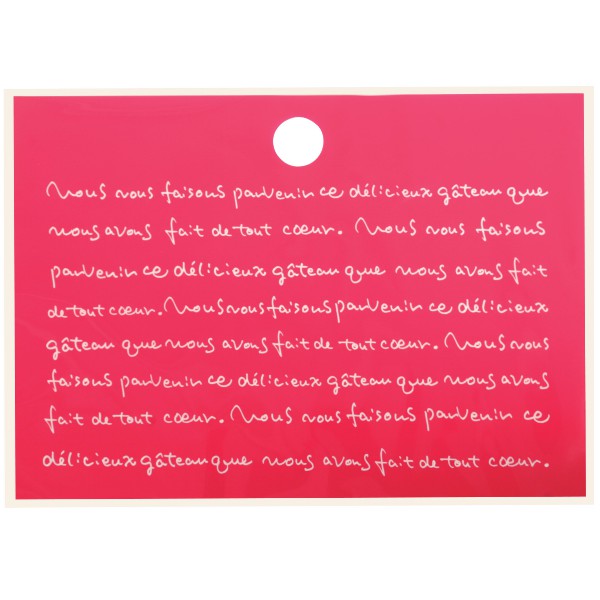 Nous vous faisons parvenir ce délicieux gâteau que
nous avons fait de tout cœur. Nous vous faisons
parvenir ce délicieux gâteau que nous avons fait
de tout cœur. Nous vous faisons parvenir ce délicieux
gâteau que nous avons fait de tout cœur. Nous vous
faisons parvenir ce délicieux gâteau que nous avons
fait de tout cœur. Nous vous faisons parvenir ce
délicieux gâteau que nous avons fait de tout cœur.